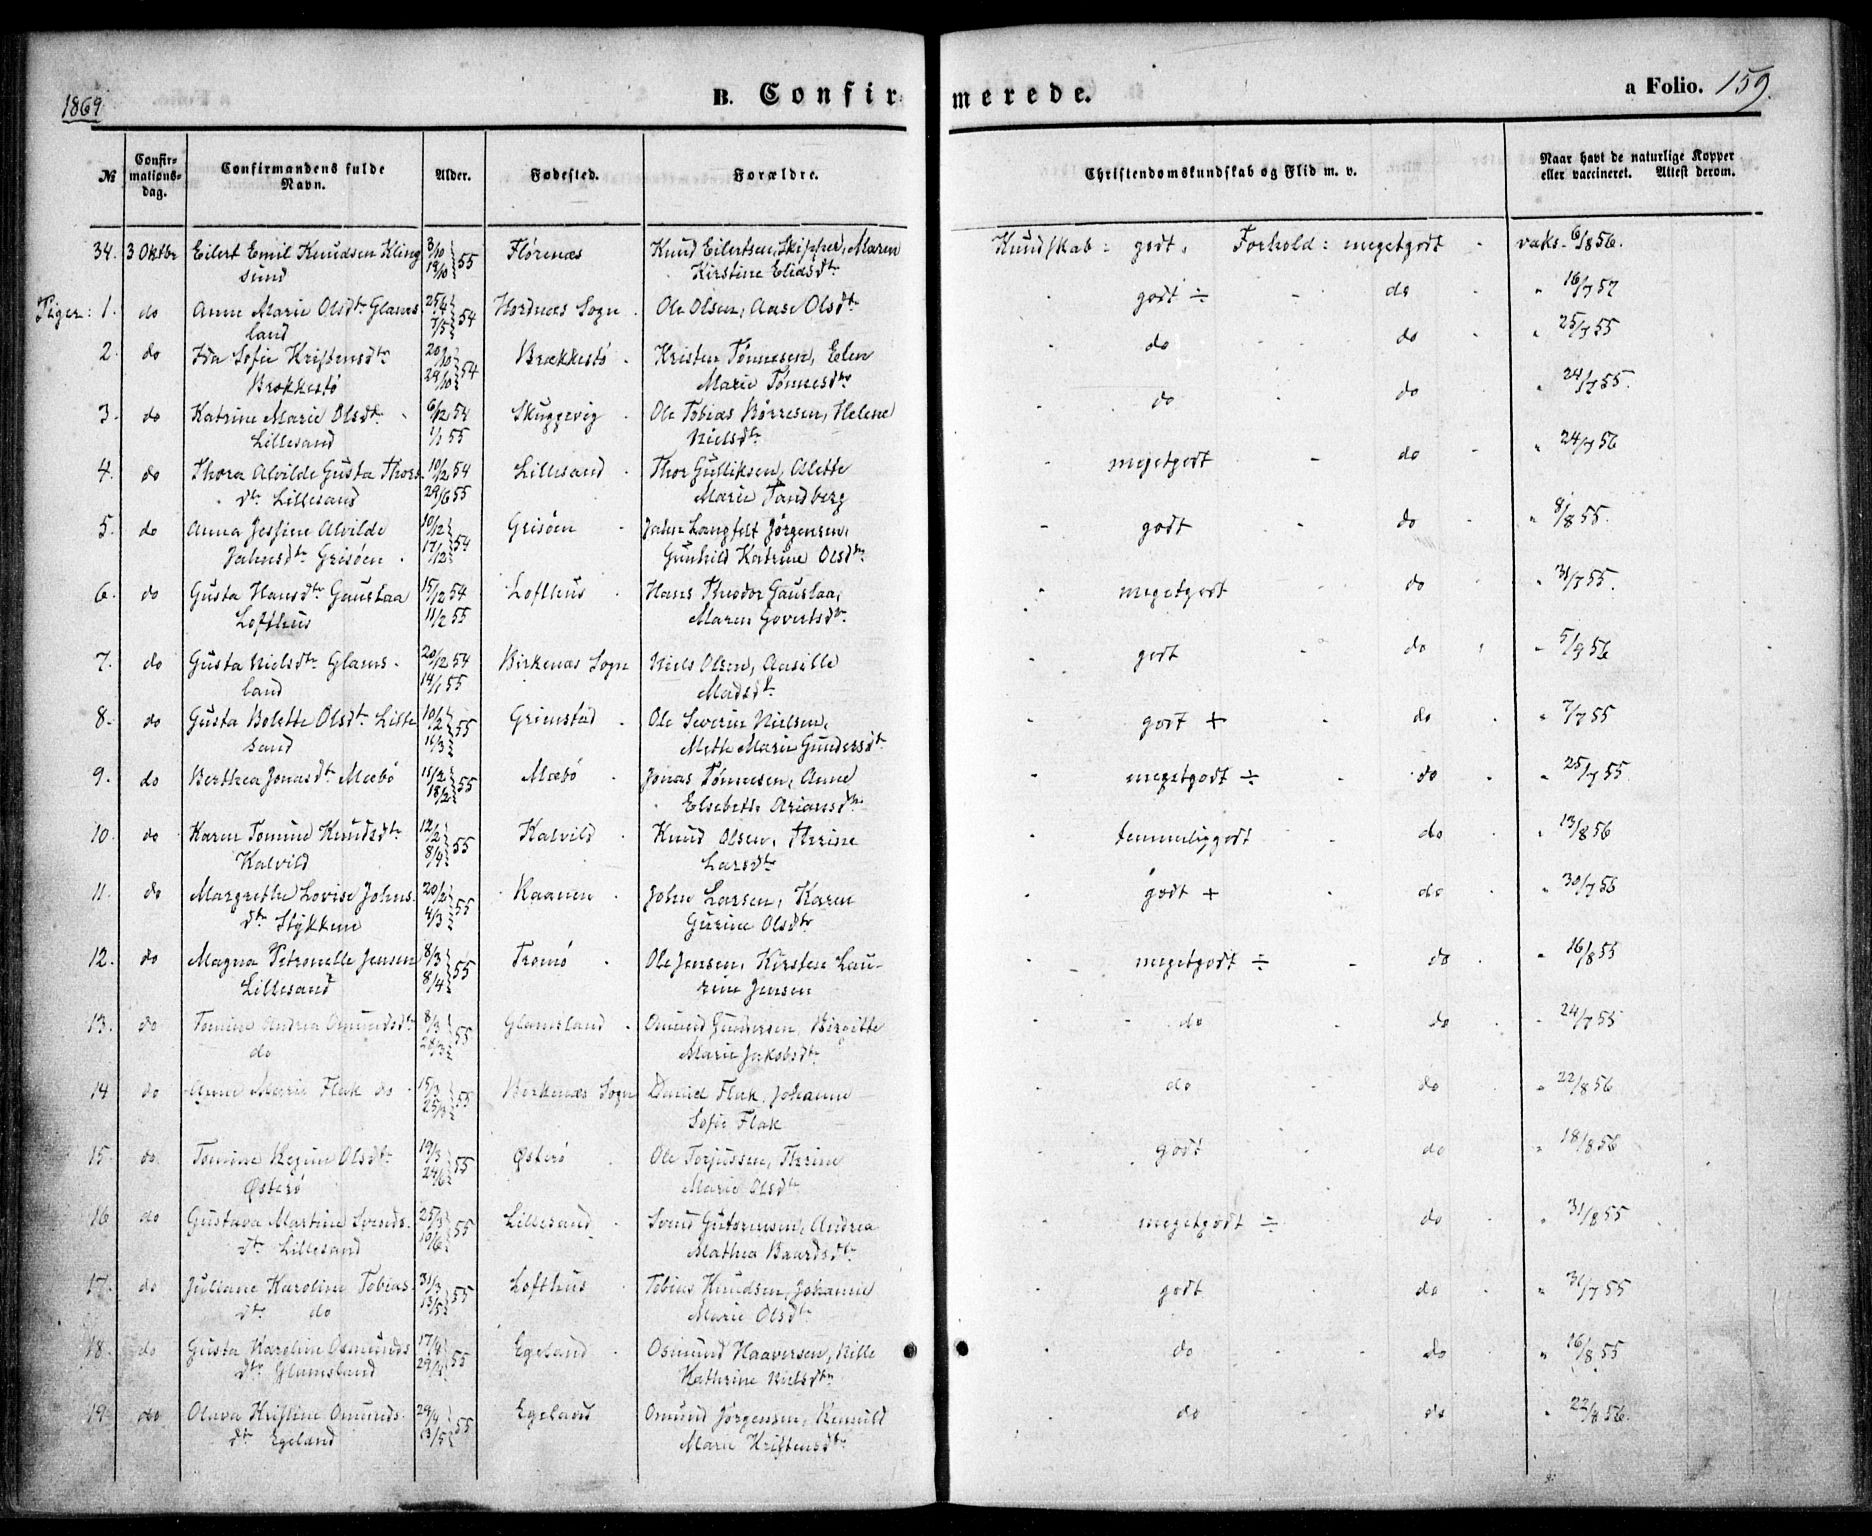 1869.
B. Confirmerede.
a Folio. 159.
№
Confirmationsdag.
Confirmandens fulde Navn.
Alder.
Fødested.
Forældre.
Christendomskundskab og Flid m. v.
Naar havt de naturlige Kopper eller vaccineret. Attest derom.
34. 3 Oktbr Eilert Emil Knudsen Kling 3/10 55 Flørenæs Knud Eilertsen, Skipper, Maren Kundskab: godt. Forhold: megetgodt vaks. 6/8 56.
sund 19/10 Kirstine Eliasdtr
Piger: 1. do Anne Marie Olsdtr Glams 25/4 54 Hordnæs Sogn Ole Olsen, Aase Olsdtr godt ÷ do " 16/7 57
land 7/5
2. do Ida Sofie Kristensdtr 20/10 54 Brækkestø Kristen Tønnesen, Elen do do " 25/7 55
Brækkestø 29/10 Marie Tønnesdtr
3. do Katrine Marie Olsdtr 6/12 54 Skuggevig Ole Tobias Børresen, Helene do do " 24/7 55.
Lillesand 1/1 55 Nielsdtr
4. do Thora Alvilde Gusta Thors 10/12 54 Lillesand Thor Gulliksen, Alette megetgodt do " 24/7 56
dtr Lillesand 29/6 55 Marie Tandberg
5. do Anna Jessine Alvilde 10/12 54 Grisøen Jahn Langfelt Jørgensen, godt do " 8/8 55.
Jahnsdtr Grisøen 17/12 Gunhild Katrine Olsdtr
6. do Gusta Hansdtr Gauslaa 15/12 54 Lofthus Hans Theodor Gauslaa, megetgodt do " 31/7 55.
Lofthus 11/2 55 Maren Govertsdtr
7. do Gusta Nielsdtr Glams 20/12 54 Birkenæs Sogn Niels Olsen, Aasille godt do " 5/9 56
land 14/1 55 Madsdtr
8. do Gusta Bolette Olsdtr Lille 10/2 55 Grimstad Ole Severin Nielsen, godt + do " 7/7 55
sand 11/3 Mette Marie Gundersdtr
9. do Berthea Jonasdtr Mæbø 11/2 55 Mæbø Jonas Tønnesen, Anne megetgodt ÷ do " 25/7 55
18/2 Elsebeth Ariansdtr
10. do Karen Tomine Knudsdtr 12/2 55 Kalvild Knud Olsen, Therine temmeliggodt do " 13/8 56
Kalvild 8/4 Larsdtr
11. do Margrethe Lovise Johns 20/2 55 Kaanen John Larsen, Karen godt + do " 30/7 56
dtr Stykkene 4/3 Gurine Olsdtr
12. do Magna Petronelle Jensen 8/3 55 Tromø Ole Jensen, Kirsten Lau- megetgodt ÷ do " 16/8 55
Lillesand 8/4 rine Jensen
13. do Tomine Andrea Omundsdtr 8/3 55 Glamsland Omund Gundersen, Birgitte do do " 24/7 55
do 28/3 Marie Jakobsdtr
14 do Anne Marie Flak do 15/3 55 Berkenæs Sogn Daniel Flak, Johanne do do " 22/8 56
25/3 Sofie Flak
15. do Tomine Regine Olsdtr 19/3 55 Østerø Ole Torjussen, Therine godt do " 18/8 56
Østerø 24/6 Marie Olsdtr
16 do Gustava Martine Svends 25/3 55 Lillesand Svend Gutormsen, Andrea megetgodt ÷ do " 31/8 55
dtr Lillesand 10/6 Mathea Baardsdtr
17. do Juliane Karoline Tobias 31/3 55 Lofthus Tobias Knudsen, Johanne godt do " 31/7 55
dtr do 13/5 Marie Olsdtr
18. do Gusta Karoline Osmunds 17/4 55 Egeland Osmund Haaversen, Nille do do " 16/8 55
dtr Glamsland 29/4 Kathrine Nielsdtr
19. do Olava Kristine Omunds 29/4 55 Egeland Omund Jørgensen, do do " 22/8 56.
dtr Egeland 13/5 Marie Kristensdtr